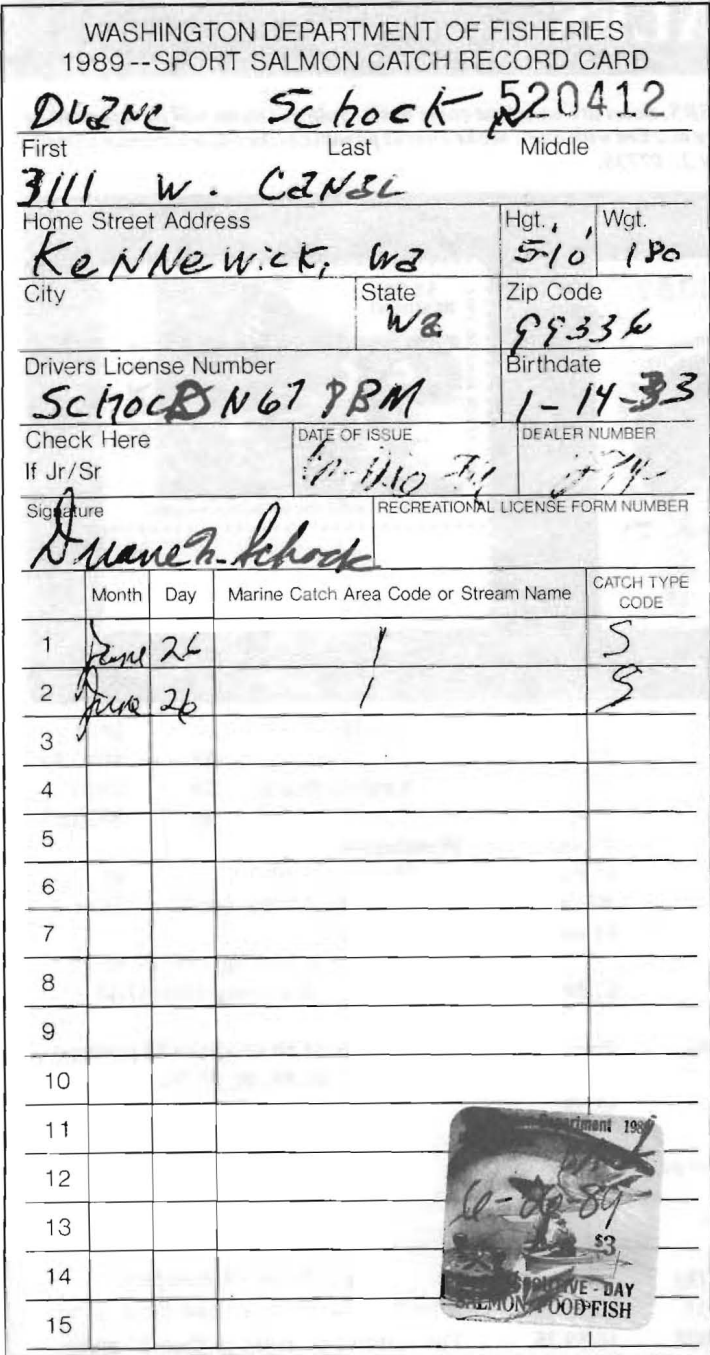 WASHINGTON DEPARTMENT OF FISHERIES
1989--SPORT SALMON CATCH RECORD CARD
Duane Schock N 520412
First Last Middle
3111 W. Canal
Home Street Address Hgt. Wgt.
Kennewick, Wa 5-10 180
City State Zip Code
Wa 99336
Drivers License Number Birthdate
SCHOC N67 PBM 1-14-33
Check Here DATE OF ISSUE DEALER NUMBER
If Jr/Sr
Signature RECREATIONAL LICENSE FORM NUMBER
Duane N. Schock
Month Day Marine Catch Area Code or Stream Name CATCH TYPE CODE
1 June 26 1 S
2 June 26 1 S
3
4
5
6
7
8
9
10
11
12
13
14
15
Department 1989
89
$3
FIVE-DAY
SALMON, FOOD FISH